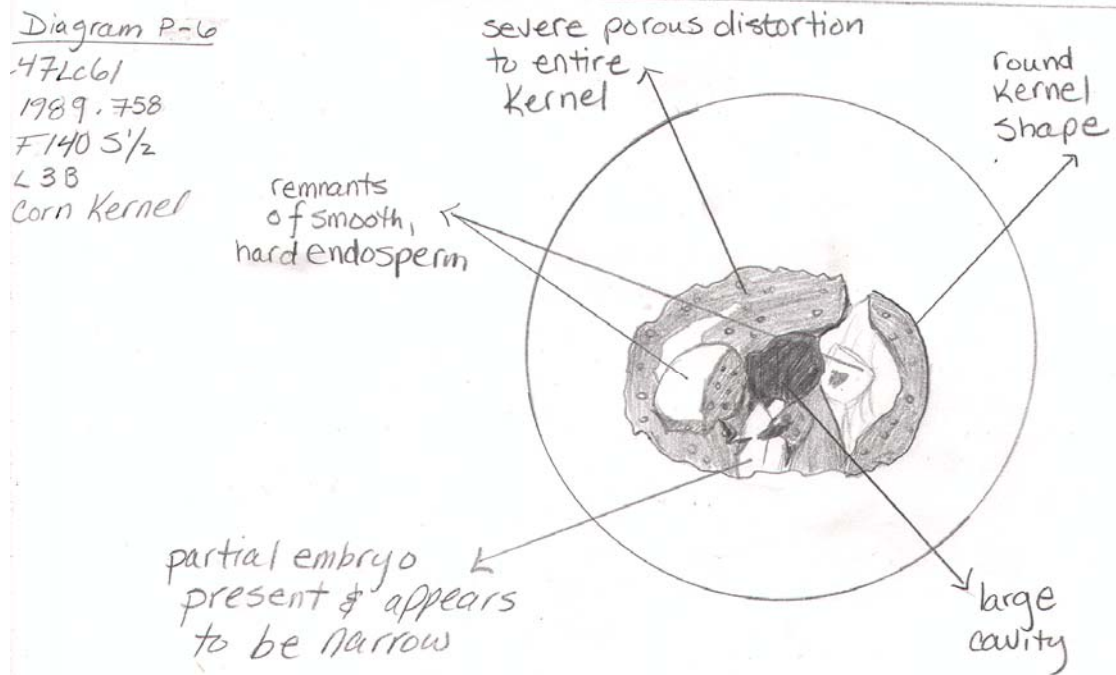 Diagram P-6
47Lc61
1989.758
F140 S1/2
L3B
Corn Kernel
severe porous distortion
to entire
Kernel
round
Kernel
Shape
remnants
of smooth,
hard endosperm
partial embryo
present & appears
to be narrow
large
cavity